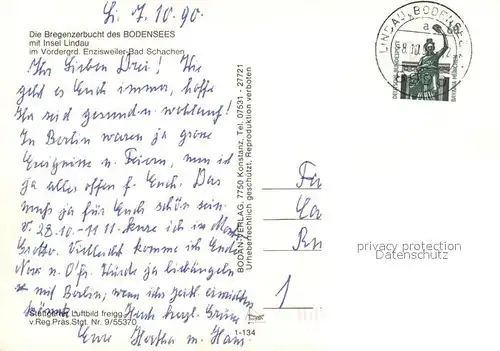 Li. 7.10.90.
Die Bregenzerbucht des BODENSEES
mit Insel Lindau
im Vordergrd. Enzisweiler-Bad Schachen
Ihr Lieben Drei! Wie
geht es Euch immer, hoffe
Ihr seid gesund u. wohlauf!
In Berlin waren ja große
Ereignisse u. Feiern, nun ist
ja alles offen f. Euch. Das
muß ja für Euch schön sein.
v. 28.10. - 11.11. kure ich in
Vielleicht komme ich Ende
Nov. n. Würde ja
mit Berlin, wenn ich zeitl.
könnte. Herzl. Grüße
Eure Hertha u. Hans
Stuttgarter Luftbild freigg.
v. Reg. Präs. Stgt. Nr. 9/55370
1-134
BODAN-VERLAG, 7750 Konstanz, Tel. 07531 - 27721
Urheberrechtlich geschützt, Reproduktion verboten
LINDAU, BODENSEE
a
8.10
DEUTSCHE BUNDESPOST
60
BAVARIA MÜNCHEN
Fa
1
privacy protection
Datenschutz